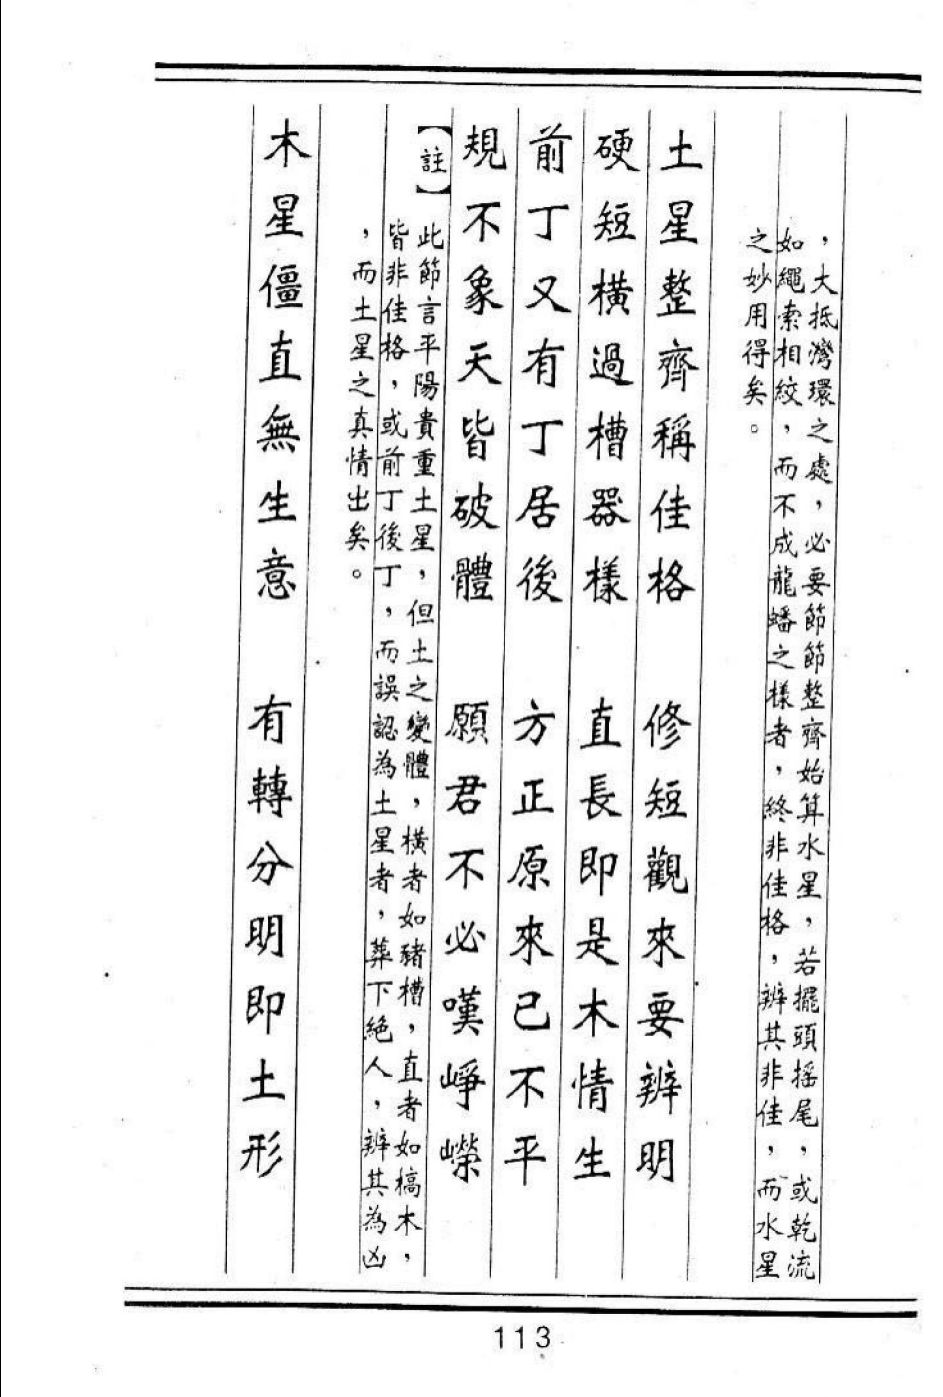 ，大抵灣環之處，必要節節整齊始算水星，若擺頭搖尾，或乾流
如繩索相絞，而不成龍蟠之樣者，終非佳格，辨其非佳，而水星
之妙用得矣。
土星整齊稱佳格　修短觀來要辨明
硬短橫過槽器樣　直長即是木情生
前丁又有丁居後　方正原來已不平
規不象天皆破體　願君不必嘆崢嶸
【註】此節言平陽貴重土星，但土之變體，橫者如豬槽，直者如槁木，
皆非佳格，或前丁後丁，而誤認為土星者，葬下絶人，辨其為凶
，而土星之真情出矣。
木星僵直無生意　有轉分明即土形
113